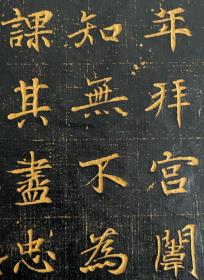 年拜宮闈
知無不為
課其盡忠